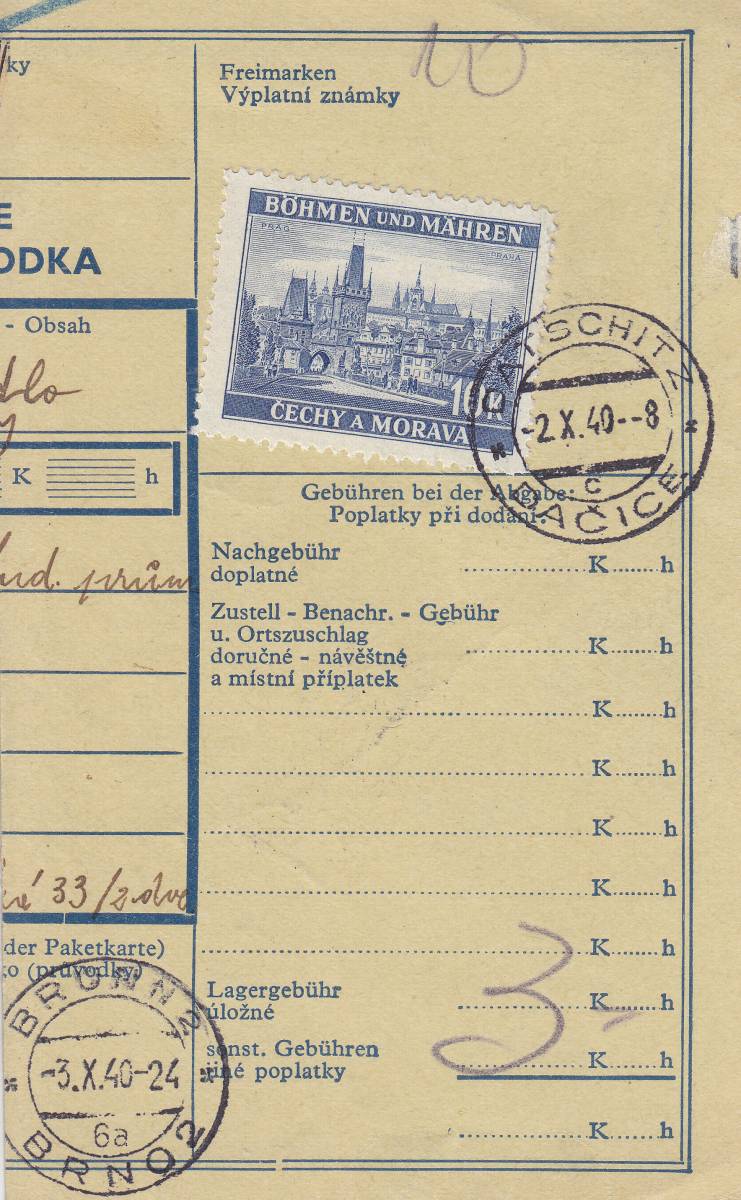 ky
Freimarken
Výplatní známky
10
E
ODKA
- Obsah
K h
BÖHMEN UND MÄHREN
PRAG PRAHA
10K
ČECHY A MORAVA
DATSCHITZ
-2.X.40--8
C
DAČICE
Gebühren bei der Abgabe:
Poplatky při dodání:
Nachgebühr
doplatné K h
Zustell - Benachr. - Gebühr
u. Ortszuschlag
doručné - návěštné K h
a místní příplatek
K h
K h
K h
K h
33/2
der Paketkarte)
ko (průvodky)
K h
Lagergebühr
úložné K h
3-
sonst. Gebühren
jiné poplatky K h
K h
BRÜNN 2
-3.X.40-24
6a
BRNO 2